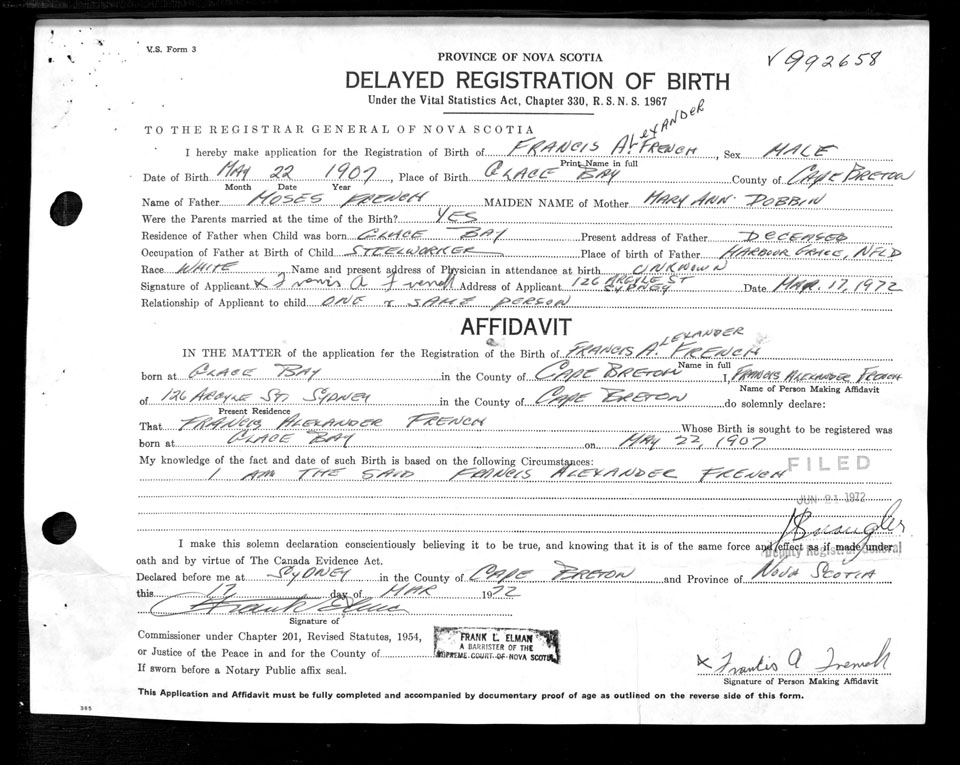 V.S. Form 3
992658
PROVINCE OF NOVA SCOTIA
DELAYED REGISTRATION OF BIRTH
Under the Vital Statistics Act, Chapter 330, R.S.N.S. 1967
TO THE REGISTRAR GENERAL OF NOVA SCOTIA
I hereby make application for the Registration of Birth of FRANCIS ALEXANDER FRENCH, Sex MALE
Print Name in full
Date of Birth MAY 22 1907, Place of Birth GLACE BAY County of CAPE BRETON
Month Date Year
Name of Father MOSES FRENCH MAIDEN NAME of Mother MARY ANN DOBBIN
Were the Parents married at the time of the Birth? YES
Residence of Father when Child was born GLACE BAY Present address of Father DECEASED
Occupation of Father at Birth of Child STEELWORKER Place of birth of Father HARBOUR GRACE, NFLD
Race WHITE Name and present address of Physician in attendance at birth UNKNOWN
Signature of Applicant x Francis A French Address of Applicant 126 ARGYLE ST SYDNEY Date MAR. 17, 1972
Relationship of Applicant to child ONE & SAME PERSON
AFFIDAVIT
IN THE MATTER of the application for the Registration of the Birth of FRANCIS ALEXANDER FRENCH
Name in full
born at GLACE BAY in the County of CAPE BRETON I, FRANCIS ALEXANDER FRENCH
Name of Person Making Affidavit
of 126 ARGYLE ST. SYDNEY in the County of CAPE BRETON do solemnly declare:
Present Residence
That FRANCIS ALEXANDER FRENCH Whose Birth is sought to be registered was
born at GLACE BAY on MAY 22, 1907
My knowledge of the fact and date of such Birth is based on the following Circumstances:
I AM THE SAID FRANCIS ALEXANDER FRENCH
FILED
JUN 21 1972
Deputy Registrar General
I make this solemn declaration conscientiously believing it to be true, and knowing that it is of the same force and effect as if made under
oath and by virtue of The Canada Evidence Act.
Declared before me at SYDNEY in the County of CAPE BRETON and Province of NOVA SCOTIA
this 17 day of MAR 1972
Frank L Elman
Signature of
Commissioner under Chapter 201, Revised Statutes, 1954,
or Justice of the Peace in and for the County of
If sworn before a Notary Public affix seal.
FRANK L. ELMAN
A BARRISTER OF THE
SUPREME COURT OF NOVA SCOTIA
x Francis A French
Signature of Person Making Affidavit
This Application and Affidavit must be fully completed and accompanied by documentary proof of age as outlined on the reverse side of this form.
385